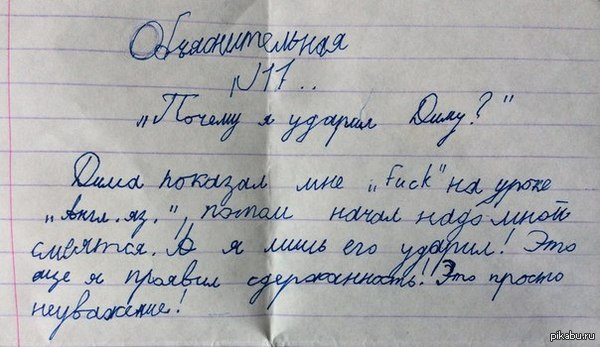 Обцяснительная
N11..
„Почему я ударил Диму?"
Дима показал мне „Fuck" на уроке
„Англ.яз.", потом начал надо мной
смеятся. А я лишь его ударил! Это
още я проявил сдержанность! Это просто
неуважение!
pikabu.ru